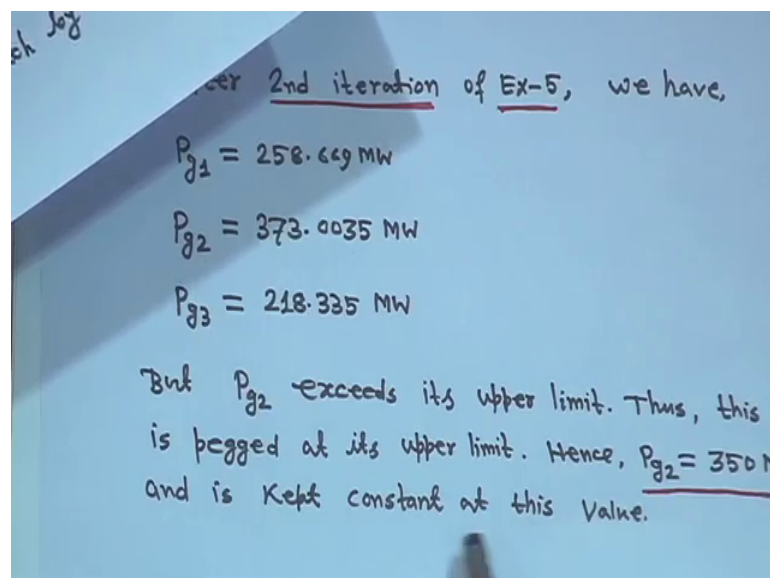 ch by
2nd iteration of Ex-5, we have,
Pg1 = 258.669 MW
Pg2 = 373.0035 MW
Pg3 = 218.335 MW
But Pg2 exceeds its upper limit. Thus, this
is pegged at its upper limit. Hence, Pg2 = 350 M
and is kept constant at this value.